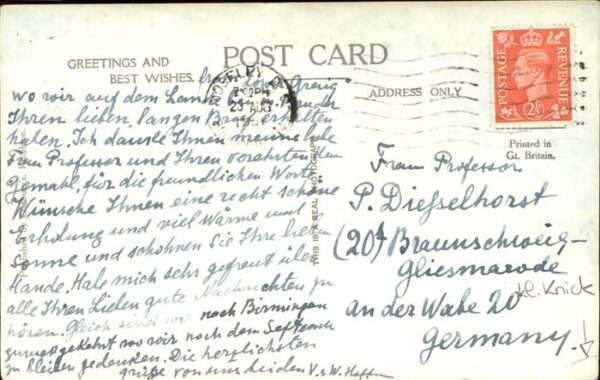 GREETINGS AND
BEST WISHES.
POST CARD
ADDRESS ONLY
POSTAGE REVENUE
2½
Printed in
Gt. Britain.
THIS IS A REAL PHOTOGRAPH
wo wir auf dem Lande
Ihren lieben langen Brief erhalten
haben. Ich danke Ihnen meine liebe
Frau Professor und Ihren verehrten
Gemahl, für die freundlichen Worte
Wünsche Ihnen eine recht schöne
Erholung und viel Wärme und
Sonne und schohnen Sie Ihre lieben
Hände. Habe mich sehr gefreut über
alle Ihren Lieben gute Nachrichten zu
hören. Gleich sind wir nach Birmingen
zurückgekehrt wo wir noch dem September
zu bleiben gedenken. Die herzlichsten
grüße von uns beiden V. & W.
Frau Professor
P. Diesselhorst
(20 Braunschweig-
Gliesmarode
Kl. Knick
an der Wabe 20
Germany.